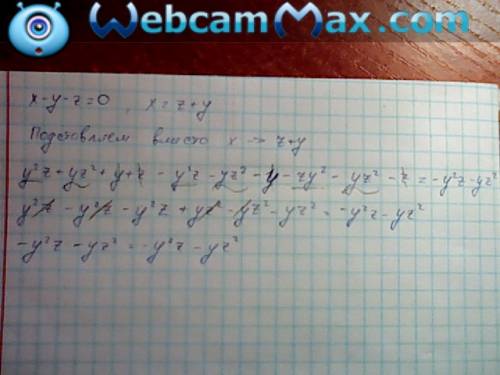 WebcamMax.com
x-y-z=0, x=z+y
Подставляем вместо x → z+y
y²z+yz²+y+z - y²z - yz² - y - zy² - yz² - z = -y²z-yz²
y²z - y²z - y²z + yz² - yz² - yz² = -y²z - yz²
-y²z - yz² = -y²z - yz²